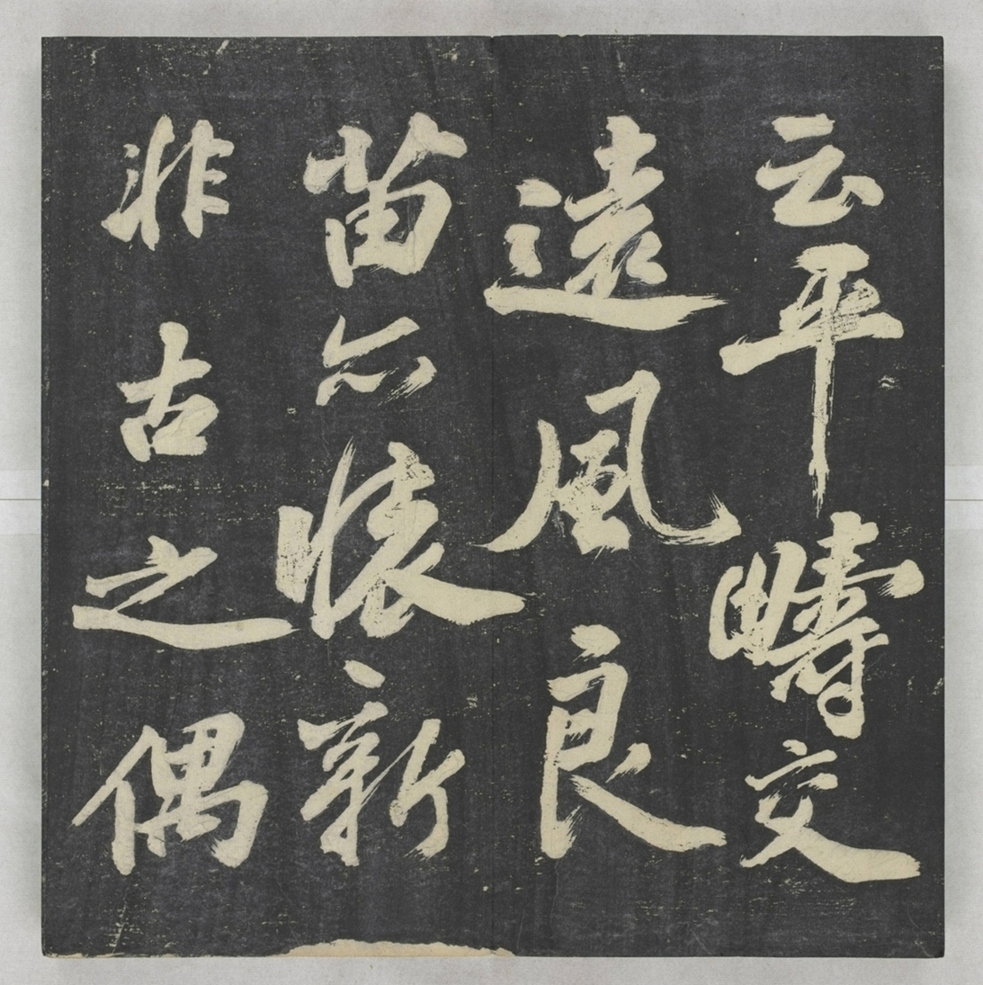 云平疇交
遠風良
苗亦懷新
非古之偶